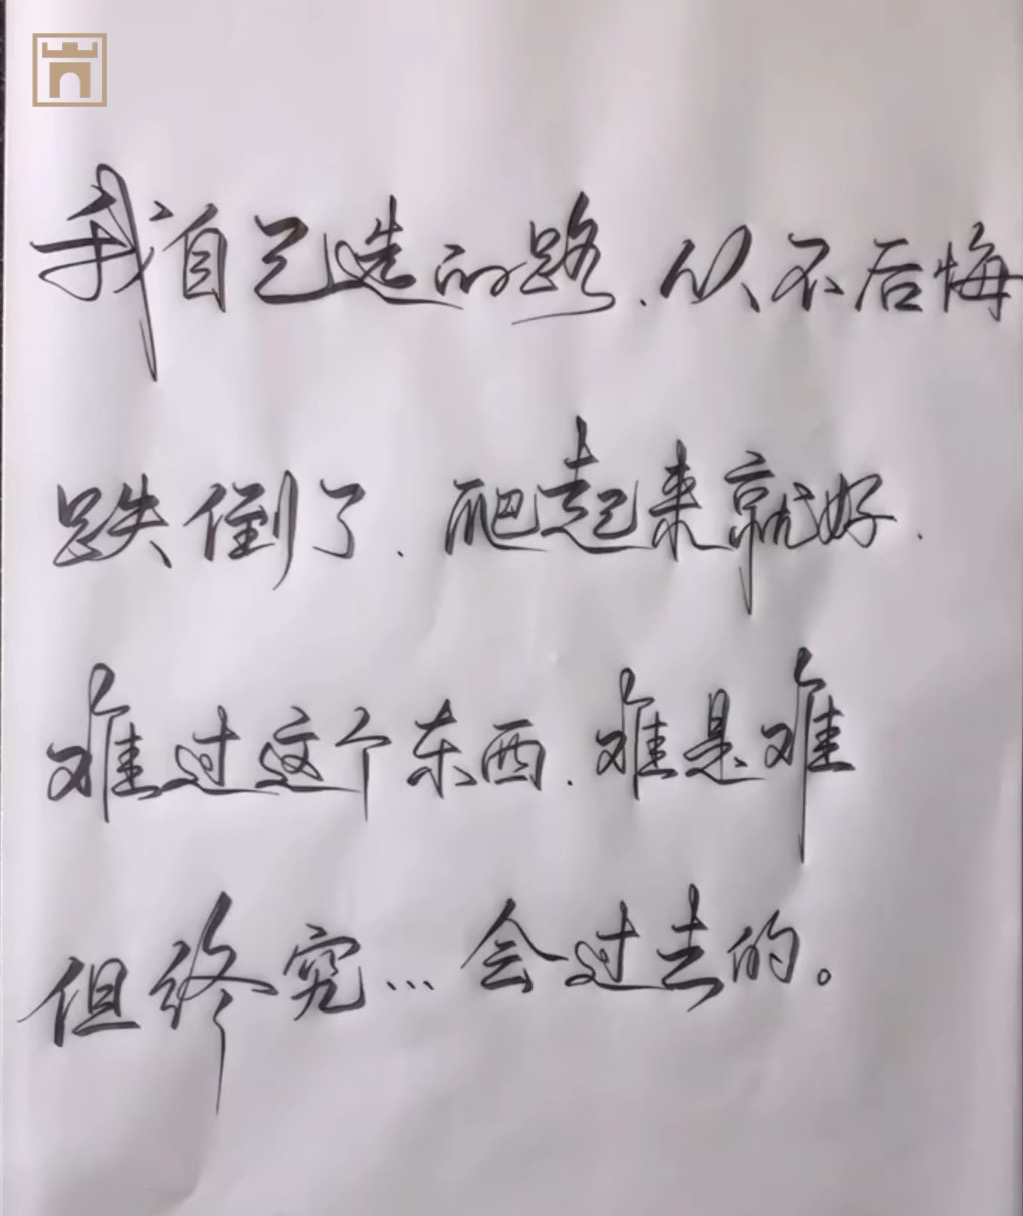 我自己选的路、从不后悔
跌倒了、爬起来就好.
难过这个东西、难是难
但终究…会过去的。